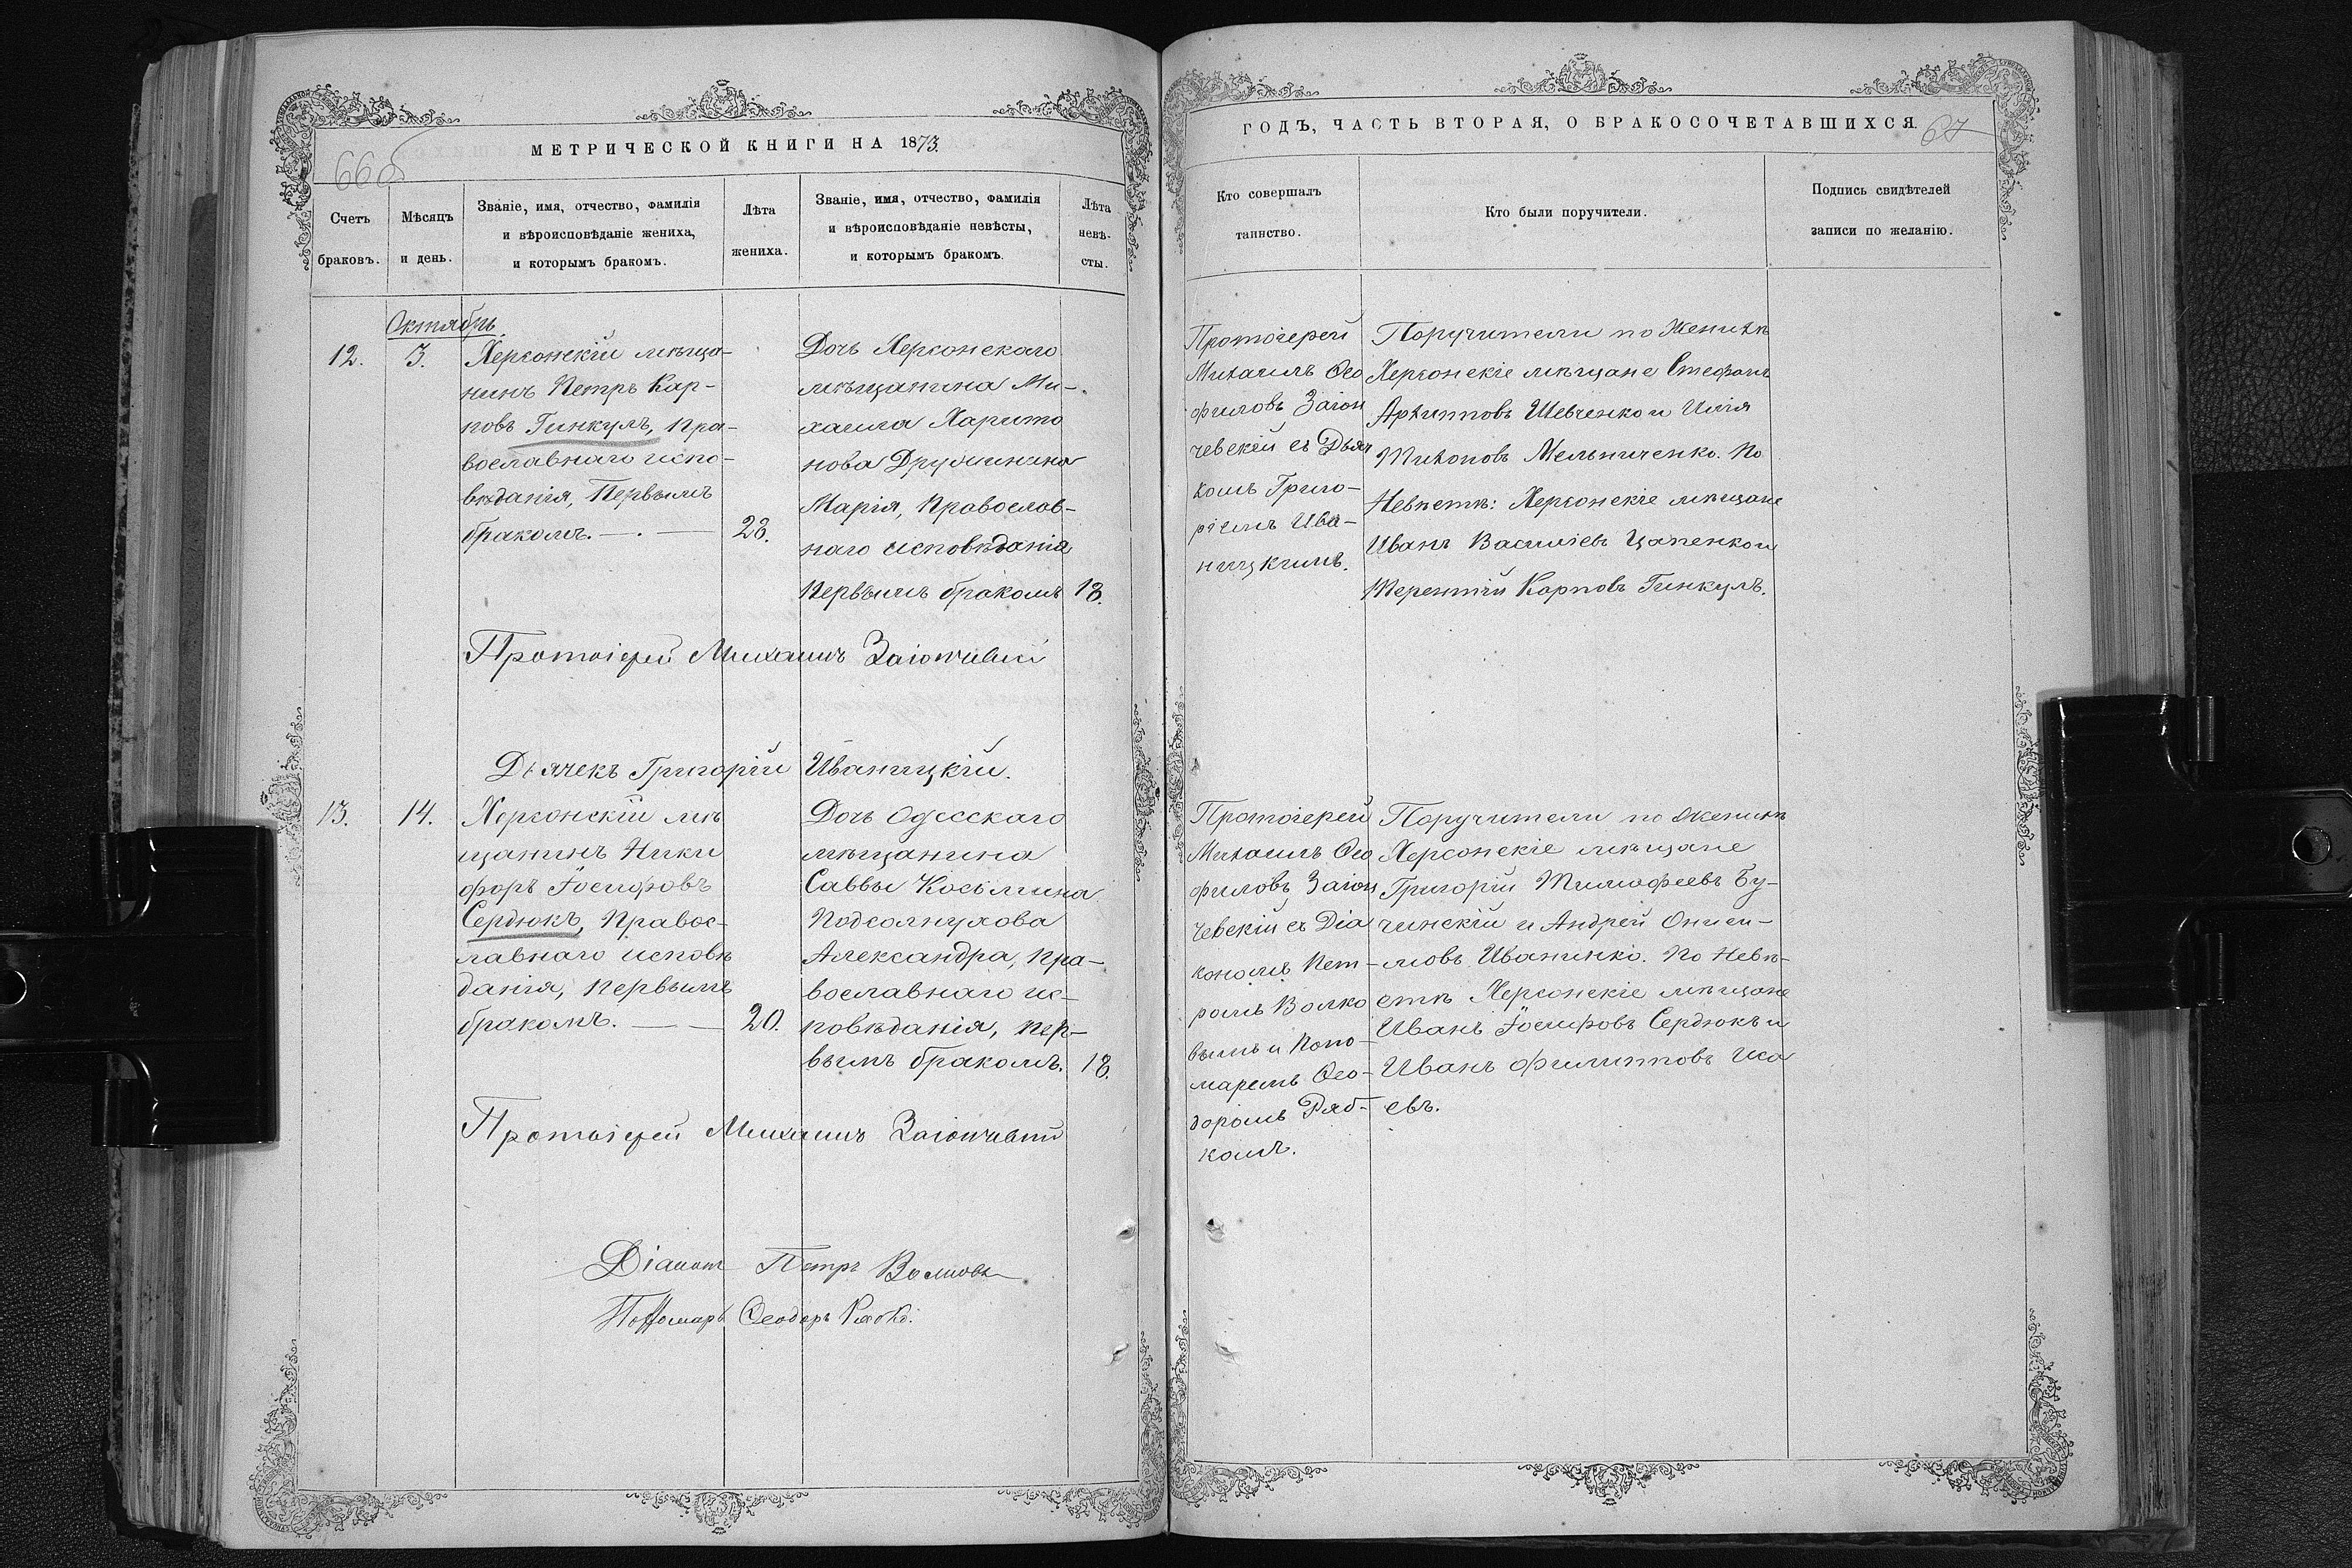 МЕТРИЧЕСКОЙ КНИГИ НА 1873.
66об
Счетъ
браковъ.
Мѣсяцъ
и день.
Званіе, имя, отчество, фамилія
и вѣроисповѣданіе жениха,
и которымъ бракомъ.
Лѣта
жениха.
Званіе, имя, отчество, фамилія
и вѣроисповѣданіе невѣсты,
и которымъ бракомъ.
Лѣта
невѣ-
сты.
Октябрь
12.
3.
Херсонскій мѣща-
нинъ Петръ Кар-
повъ Гинкулъ, пра-
вославнаго испо-
вѣданія, Первымъ
бракомъ. —. —
28.
Дочь Херсонскаго
мѣщанина Ми-
хаила Харито
нова Дружинина
Марія, Православ-
наго исповѣданія
Первымъ бракомъ
18.
Протоіерей Михаилъ Заіончевскій
Дьячекъ Григорій Иваницкій.
13.
14.
Херсонскій мѣ
щанинъ Ники
форъ Іосифовъ
Сердюкъ, Правос-
лавнаго исповѣ
данія, Первымъ
бракомъ. — —
20.
Дочь Одесскаго
мѣщанина
Саввы Косьмина
Подсолнухова
Александра, Пра-
вославнаго ис-
повѣданія, пер-
вымъ бракомъ.
18.
Протоіерей Михаилъ Заіончевскій
Діаконъ Петръ Волковъ
Пономарь Ѳеодоръ Рябко.
ГОДЪ, ЧАСТЬ ВТОРАЯ, О БРАКОСОЧЕТАВШИХСЯ.
67
Кто совершалъ
таинство.
Кто были поручители.
Подпись свидѣтелей
записи по желанію.
Протоіерей
Михаилъ Ѳео
филовъ Заіон
чевскій съ Дьяч
комъ Григо-
ріемъ Ива-
ницкимъ.
Поручители по Женихѣ
Херсонскіе мѣщане Стефанъ
Архиповъ Шевченко и Илія
Тихоновъ Мельниченко. По
Невѣстѣ: Херсонскіе мѣщане
Иванъ Василіевъ Цапенко и
Терентій Карповъ Гинкулъ.
Протоіерей
Михаилъ Ѳео
филовъ Заіон
чевскій съ Діа
кономъ Пет-
ромъ Волко
вымъ и Поно-
маремъ Ѳео-
доромъ Ряб-
комъ.
Поручители по Женихѣ
Херсонскіе мѣщане
Григорій Тимофеевъ Бу-
чинскій и Андрей Ониси-
мовъ Иваненко. По Невѣ-
стѣ Херсонскіе мѣщане
Иванъ Іосифовъ Сердюкъ и
Иванъ Филипповъ Иса
евъ.